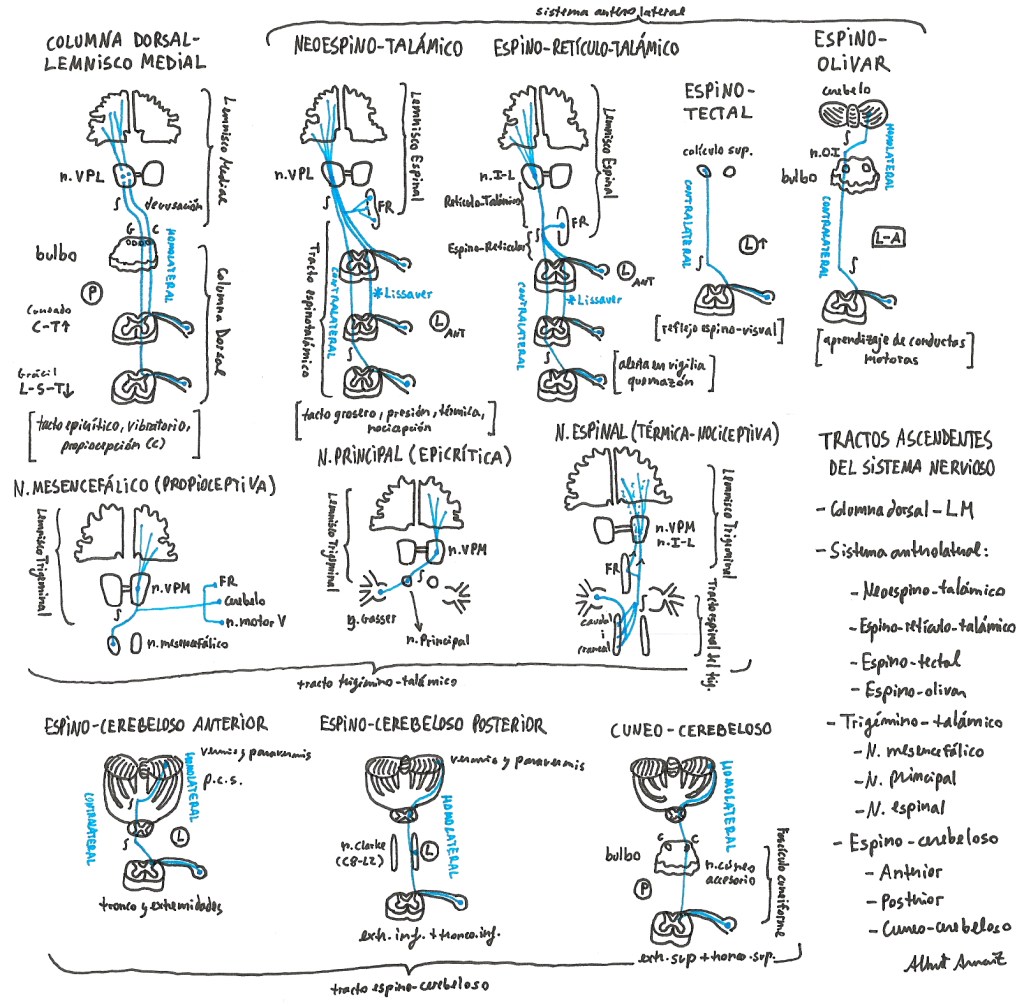 sistema anterolateral
COLUMNA DORSAL-
LEMNISCO MEDIAL
Lemnisco Mediae
n. VPL
S
decusación
G C
bulbo
HOMOLATERAL
P
Columna Dorsal
Cuneado
C-T↑
Grácil
L-S-T↓
[tacto epicrítico, vibratorio,
propiocepción (c)]
NEOESPINO-TALÁMICO
Lemnisco Espinal
n. VPL
S
FR
Tracto espinotalámico
CONTRALATERAL
*Lissaver
L ANT
S
[tacto grosero, presión, térmica,
nocicepción]
ESPINO-RETÍCULO-TALÁMICO
Lemnisco Espinal
n. I-L
Retículo-Talámico
FR
S
Espino-Reticular
L ANT
CONTRALATERAL
*Lissaver
S
[alerta en vigilia
quemazón]
ESPINO-
TECTAL
colículo sup.
CONTRALATERAL
L↑
S
[reflejo espino-visual]
ESPINO-
OLIVAR
cerebelo
S
HOMOLATERAL
n. OI
bulbo
CONTRALATERAL
L-A
S
[aprendizaje de conductas
motoras]
N. MESENCEFÁLICO (PROPIOCEPTIVA)
Lemnisco Trigeminal
n. VPM
S
FR
Cerebelo
n. motor V
n. mesencefálico
N. PRINCIPAL (EPICRÍTICA)
Lemnisco Trigeminal
n. VPM
S
g. Gasser
n. Principal
N. ESPINAL (TÉRMICA-NOCICEPTIVA)
Lemnisco Trigeminal
n. VPM
n. I-L
FR
S
caudal
i
craneal
Tracto espinal del trig.
tracto trigémino-talámico
ESPINO-CEREBELOSO ANTERIOR
vermis y paravermis
HOMOLATERAL
p.c.s.
S
CONTRALATERAL
L
S
tronco y extremidades
ESPINO-CEREBELOSO POSTERIOR
vermis y paravermis
HOMOLATERAL
n. Clarke
(C8-L2)
L
extr. inf. + tronco. inf.
CUNEO-CEREBELOSO
HOMOLATERAL
G C
bulbo
n. cúneo
accesorio
P
Fascículo cuneiforme
extr. sup + tronco. sup.
tracto espino-cerebeloso
TRACTOS ASCENDENTES
DEL SISTEMA NERVIOSO
- Columna dorsal - LM
- Sistema anterolateral:
- Neoespino-talámico
- Espino-retículo-talámico
- Espino-tectal
- Espino-olivar
- Trigémino-talámico
- N. mesencefálico
- N. principal
- N. espinal
- Espino-cerebeloso
- Anterior
- Posterior
- Cuneo-cerebeloso